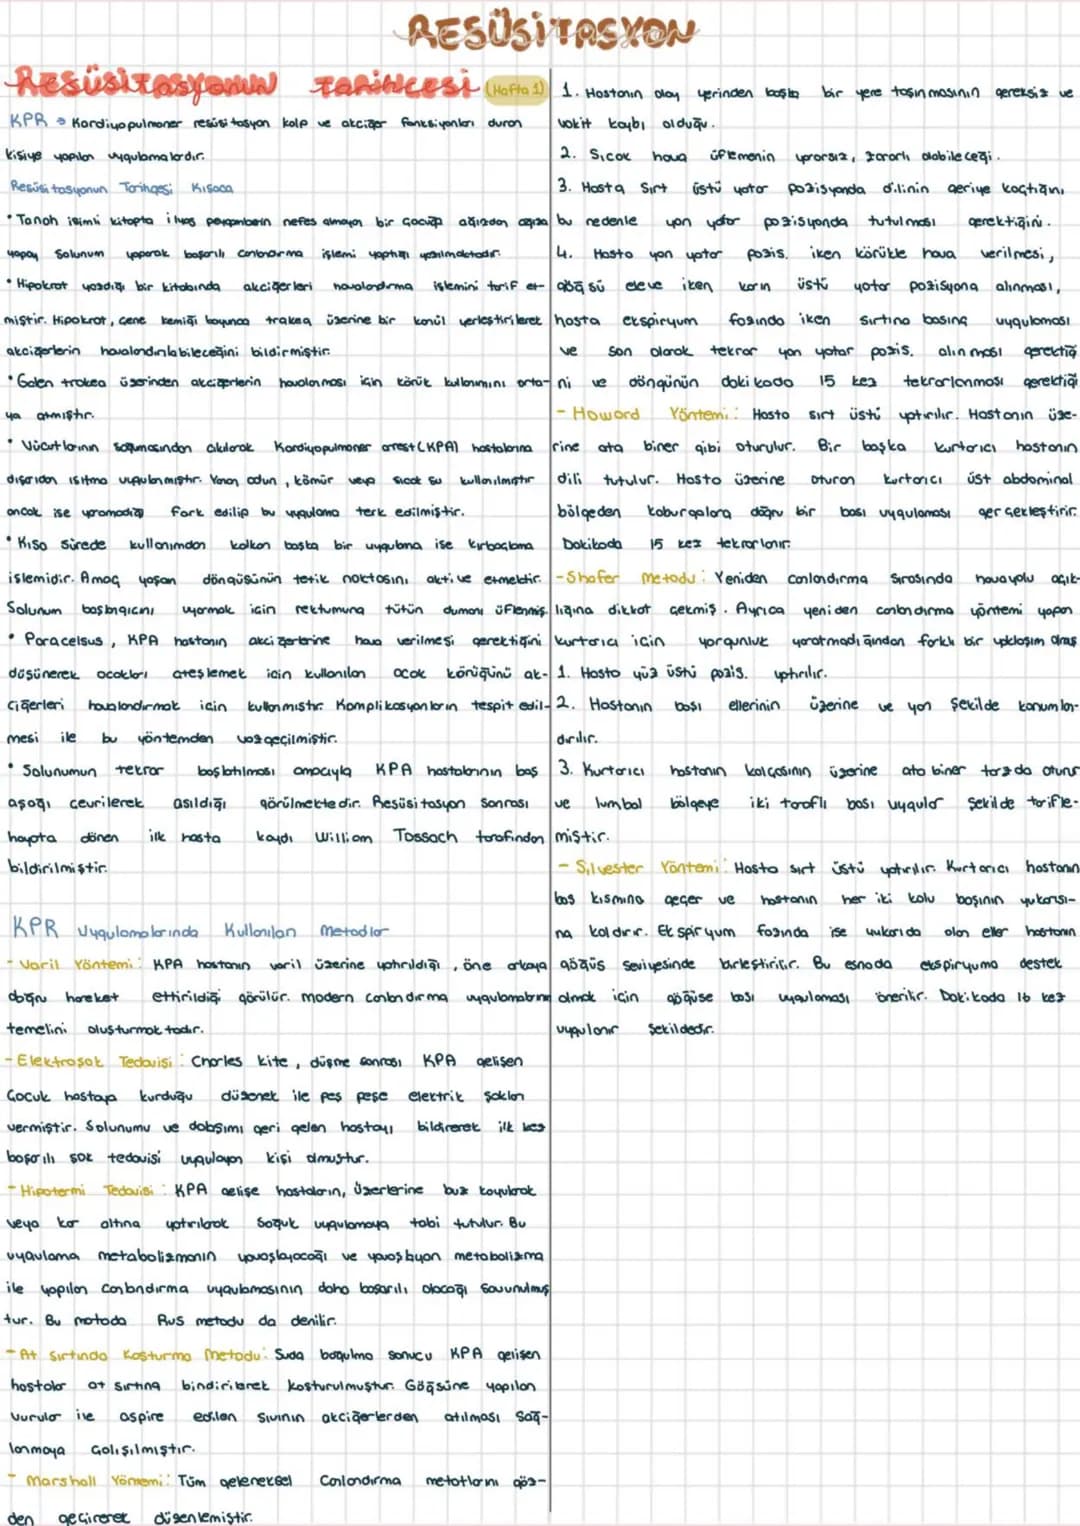 RESÜSİTASYON
Resüsitasyonun tarihçesi (Hafta 1)
KPR → Kardiyopulmoner resüsitasyon kalp ve akciğer fonksiyonları duran
kişiye yapılan uygulamalardır.
Resüsitasyonun Tarihçesi Kısaca
• Tanah isimli kitapta İlyas peygamberin nefes almayan bir çocuğa ağızdan ağıza
yapay solunum yaparak başarılı canlandırma işlemi yaptığı yazılmaktadır.
• Hipokrat yazdığı bir kitabında akciğerleri havalandırma işlemini tarif et-
miştir. Hipokrat, çene kemiği boyunca trakea üzerine bir kanül yerleştirilerek
akciğerlerin havalandırılabileceğini bildirmiştir.
• Galen trakea üzerinden akciğerlerin havalanması için körük kullanımını orta-
ya atmıştır.
• Vücutlarının soğumasından akılarak Kardiyopulmoner arrest (KPA) hastalarına
dışarıdan ısıtma uygulanmıştır. Yanan odun, kömür veya sıcak su kullanılmıştır
ancak işe yaramadığı fark edilip bu uygulama terk edilmiştir.
• Kısa sürede kullanımdan kalkan başka bir uygulama ise kırbaçlama
işlemidir. Amaç yaşam döngüsünün tetik noktasını aktive etmektir.
Solunum başlangıcını uyarmak için rektumuna tütün dumanı üflenmiş.
• Paracelsus, KPA hastanın akciğerlerine hava verilmesi gerektiğini
düşünerek ocakları ateşlemek için kullanılan ocak körüğünü ak-
ciğerleri havalandırmak için kullanmıştır. Komplikasyonların tespit edil-
mesi ile bu yöntemden vazgeçilmiştir.
• Solunumun tekrar başlatılması amacıyla KPA hastalarının baş
aşağı çevrilerek asıldığı görülmektedir. Resüsitasyon sonrası
hayata dönen ilk hasta kaydı William Tossach tarafından
bildirilmiştir.
KPR Uygulamalarında Kullanılan Metodlar
- Varil Yöntemi: KPA hastanın varil üzerine yatırıldığı, öne arkaya
doğru hareket ettirildiği görülür. Modern canlandırma uygulamalarının
temelini oluşturmaktadır.
- Elektroşok Tedavisi: Charles kite, düşme sonrası KPA gelişen
çocuk hastaya kurduğu düzenek ile peş peşe elektrik şokları
vermiştir. Solunumu ve dolaşımı geri gelen hastayı bildirerek ilk kez
başarılı şok tedavisi uygulayan kişi olmuştur.
- Hipotermi Tedavisi: KPA gelişe hastaların, üzerlerine buz koyularak
veya kar altına yatırılarak soğuk uygulamaya tabi tutulur. Bu
uygulama metabolizmanın yavaşlayacağı ve yavaşlayan metabolizma
ile yapılan canlandırma uygulamasının daha başarılı olacağı savunulmuş
tur. Bu motoda Rus metodu da denilir.
- At sırtında koşturma metodu: Suda boğulma sonucu KPA gelişen
hastalar at sırtına bindirilerek koşturulmuştur. Göğsüne yapılan
vurular ile aspire edilen sıvının akciğerlerden atılması sağ-
lanmaya çalışılmıştır.
- Marshall Yöntemi: Tüm geleneksel canlandırma metotlarını göz-
den geçirerek düzenlemiştir.
1. Hastanın olay yerinden başka bir yere taşınmasının gereksiz ve
vakit kaybı olduğu.
2. Sıcak hava üflemenin yararsız, zararlı olabileceği.
3. Hasta sırt üstü yatar pozisyonda dilinin geriye kaçtığını
bu nedenle yan yatar pozisyonda tutulması gerektiğini.
4. Hasta yan yatar pozis. iken körükle hava verilmesi,
göğsü eleve iken karın üstü yatar pozisyona alınması,
hasta ekspiryum fazında iken sırtına basınç uygulaması
ve son olarak tekrar yan yatar pozis. alınması gerektiği
ni ve döngünün dakikada 15 kez tekrarlanması gerektiği
- Howard Yöntemi: Hasta sırt üstü yatırılır. Hastanın üze-
rine ata biner gibi oturulur. Bir başka kurtarıcı hastanın
dili tutulur. Hasta üzerine oturan kurtarıcı üst abdominal
bölgeden kaburgalara doğru bir bası uygulaması gerçekleştirir.
Dakikada 15 kez tekrarlanır.
- Shafer metodu: Yeniden canlandırma sırasında havayolu açık-
lığına dikkat çekmiş. Ayrıca yeniden canlandırma yöntemi yapan
kurtarıcı için yorgunluk yaratmadığından farklı bir yaklaşım olmuş
1. Hasta yüz üstü pozis. yatırılır.
2. Hastanın başı ellerinin üzerine ve yan şekilde konumlan-
dırılır.
3. Kurtarıcı hastanın kalçasının üzerine ata biner tarzda oturur
ve lumbal bölgeye iki taraflı bası uygular şekilde tarifle-
miştir.
- Silvester Yöntemi: Hasta sırt üstü yatırılır. Kurtarıcı hastanın
baş kısmına geçer ve hastanın her iki kolu başının yukarısı-
na kaldırır. Ekspiryum fazında ise yukarıda olan eller hastanın
göğüs seviyesinde birleştirilir. Bu esnada ekspiryuma destek
olmak için göğüse bası uygulaması önerilir. Dakikada 16 kez
uygulanır şekildedir.